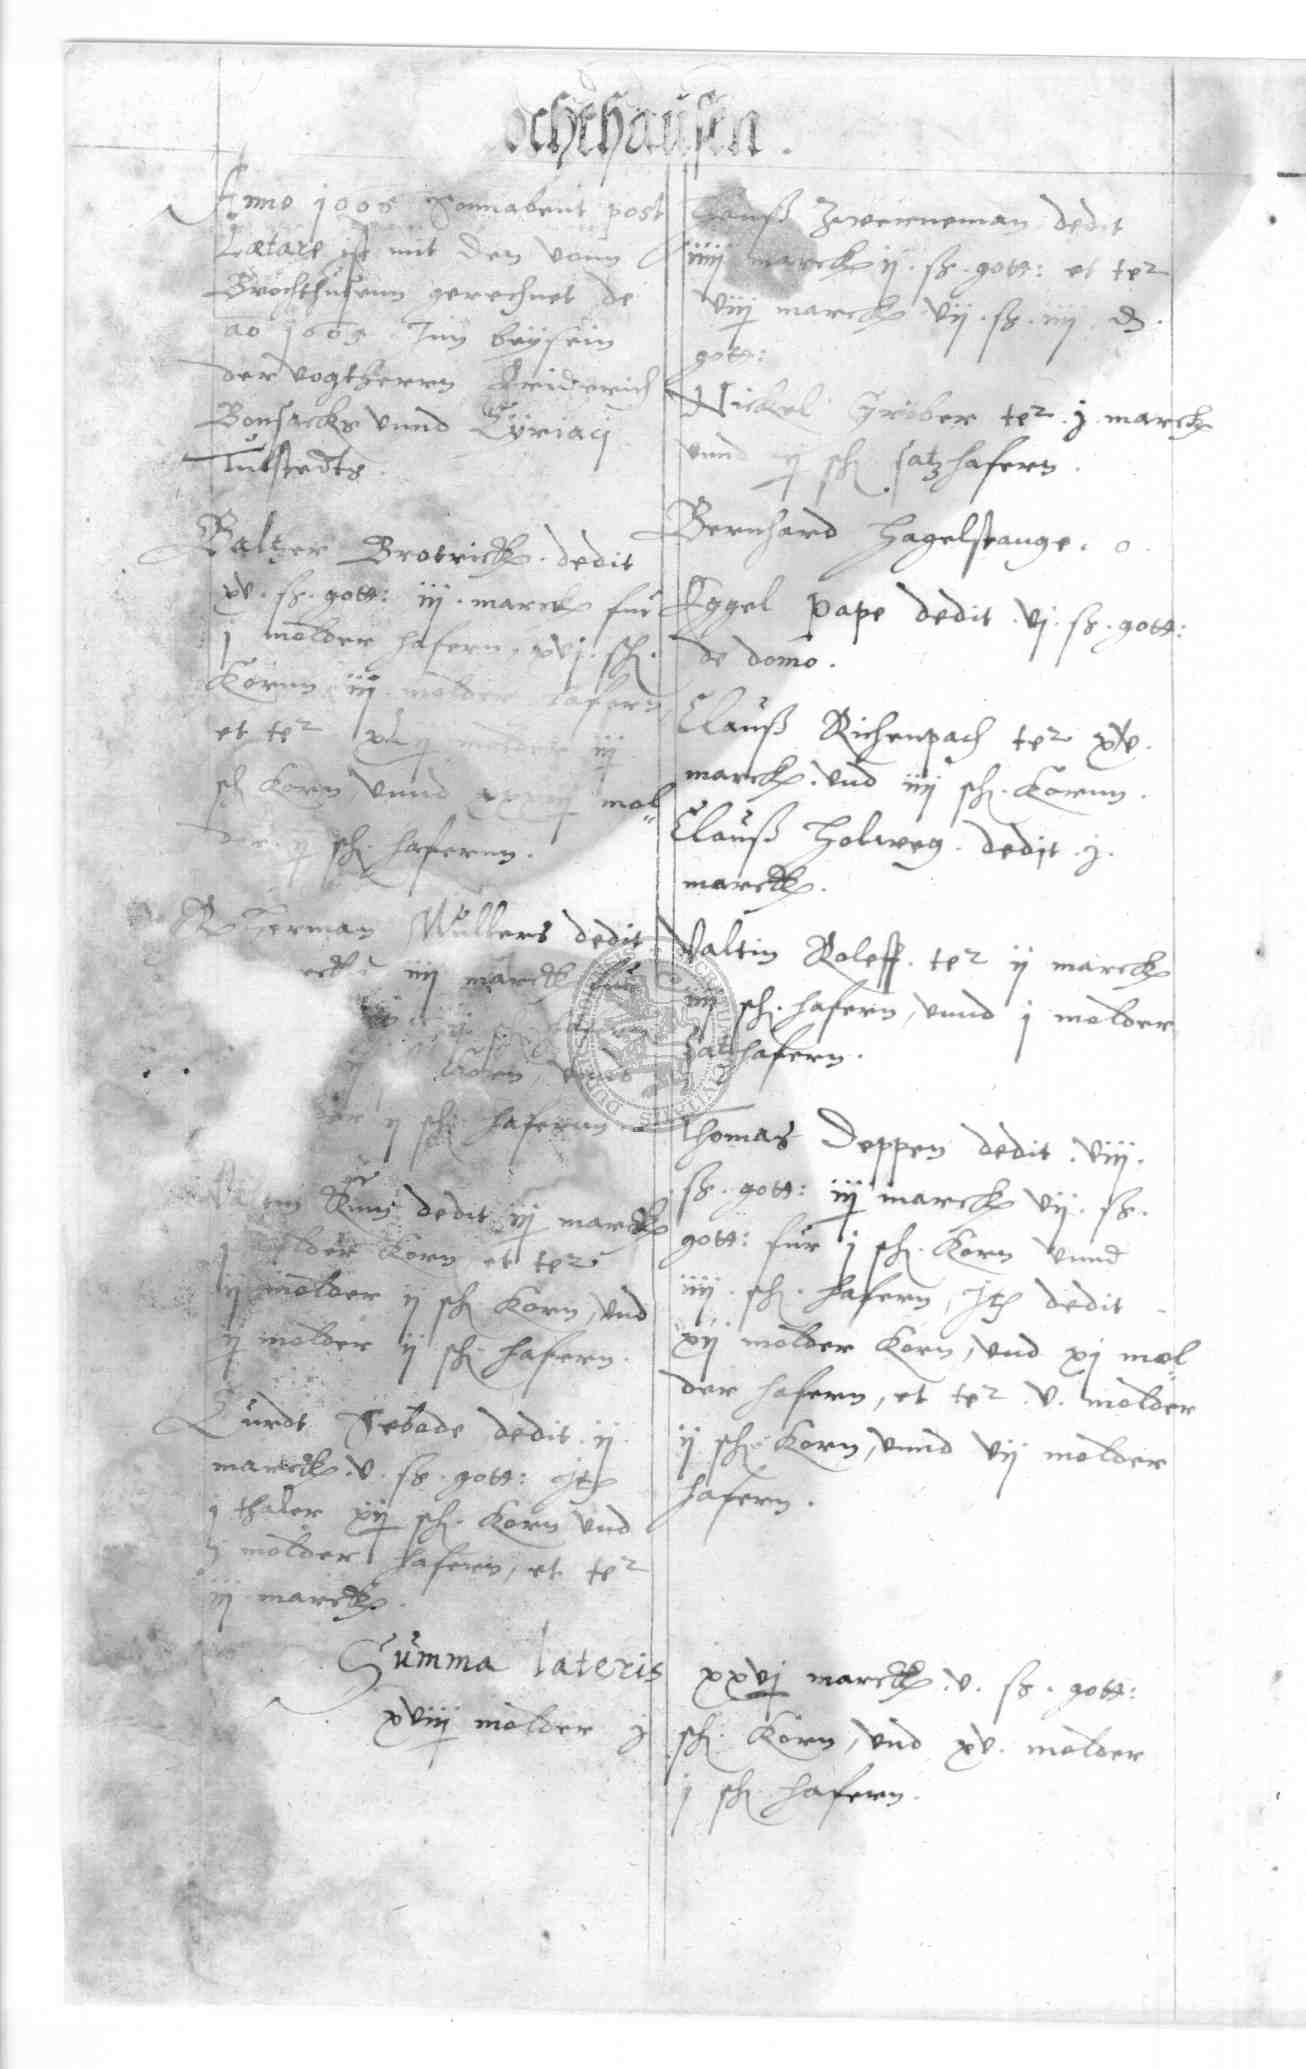 ochthausen.
Anno 1606 Sonnabent post
Lætare ist mit den vonn
Brochthusenn gerechnet de
ao 1605. Inn beysein
der vogtherrn Friderich
Bonsacks vnnd Cÿriacj
Tutstedts.
Baltzer Brotrick. dedit
xv. ß. gott: iij. marck fur
j molder hafern, xvj. sch.
Kornn iij molder hafern
et ter molder iij
sch Korn vnnd mol
der ij sch. hafernn.
Herman Müllers dedit
iiij marck fur
Korn, vnnd
ij sch. hafernn.
dedit iij marck
molder Korn et ter
ij molder ij sch Korn, vnd
ij molder ij sch. hafern.
Curdt Sebode dedit. ij.
marck. v. ß. gott: Jt
j thaler xij sch. Korn vnd
molder hafern, et ter
iij marck.
Clauß Zwerneman dedit
iiij marck ij. ß. gott: et ter
viij marck vij. ß. iiij. d.
gott:
Nickel Gröber ter. j. marck
vnnd ij sch. satzhafern.
Bernhard Hagelstange. o.
Eggel Pape dedit. vj. ß. gott:
de domo.
Clauß Richenpach ter xv.
marck. vnd iiij sch. Kornn.
Clauß Holweg. dedit. j.
marck.
Valtin Roleff. ter ij marck
iiij sch. hafern, vnnd j molder
Satzhafern.
Thomas Deppen dedit. viij.
ß. gott: iij marck vij. ß.
gott: für j sch. Korn vnnd
iiij. sch. hafern, Jt dedit
xij molder Korn, vnd xj mol
der hafern, et ter. v. molder
ij sch. Korn, vnnd vij molder
hafern.
Summa lateris xxvj marck. v. ß. gott:
xviij molder j sch. Korn, vnd xv. molder
j sch hafern.